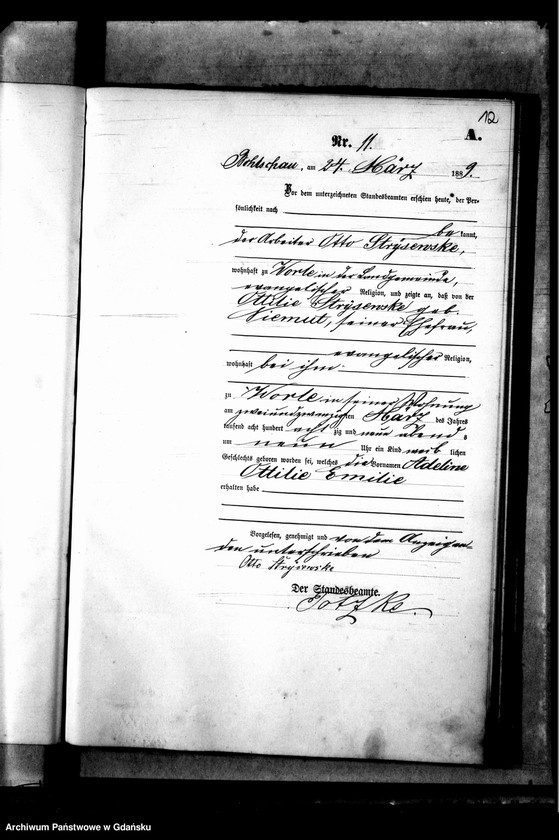 12
A.
Nr. 11.
Bohlschau, am 24. März 1889.
Vor dem unterzeichneten Standesbeamten erschien heute, der Per-
sönlichkeit nach
be kannt,
der Arbeiter Otto Strysewske,
wohnhaft zu Worle in der Landgemeinde,
evangelischer Religion, und zeigte an, daß von der
Ottilie Strysewske geb.
Niemut, seiner Ehefrau,
evangelischer Religion,
wohnhaft bei ihm.
zu Worle in seiner Wohnung
am zweiundzwanzigsten März des Jahres
tausend acht hundert acht zig und neun abend s
um neun Uhr ein Kind weib lichen
Geschlechts geboren worden sei, welches die Vornamen Adeline
Ottilie Emilie
erhalten habe
Vorgelesen, genehmigt und von dem Anzeigen-
den unterschrieben
Otto Strysewske
Der Standesbeamte.
Archiwum Państwowe w Gdańsku